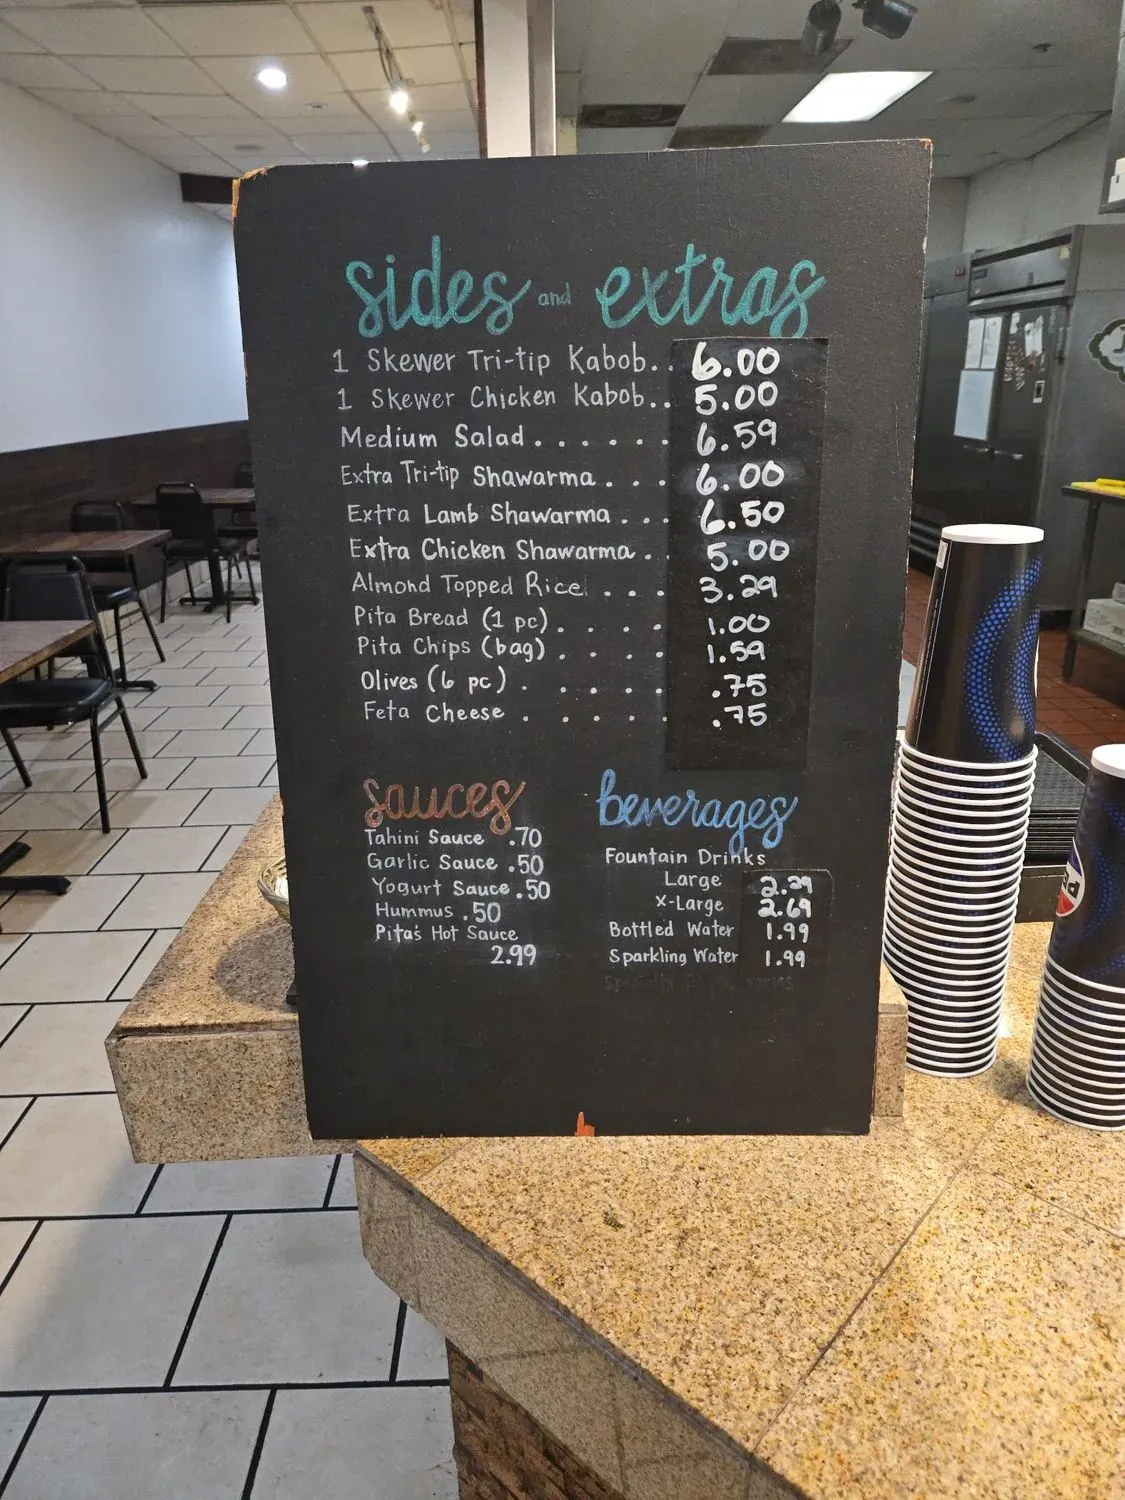 sides and extras
1 Skewer Tri-tip Kabob.. 6.00
1 Skewer Chicken Kabob.. 5.00
Medium Salad....... 6.59
Extra Tri-tip Shawarma... 6.00
Extra Lamb Shawarma... 6.50
Extra Chicken Shawarma.. 5.00
Almond Topped Rice... 3.29
Pita Bread (1 pc).... 1.00
Pita Chips (bag).... 1.59
Olives (6 pc)..... .75
Feta Cheese..... .75
sauces
Tahini Sauce .70
Garlic Sauce .50
Yogurt Sauce .50
Hummus .50
Pita's Hot Sauce
2.99
beverages
Fountain Drinks
Large 2.29
X-Large 2.69
Bottled Water 1.99
Sparkling Water 1.99